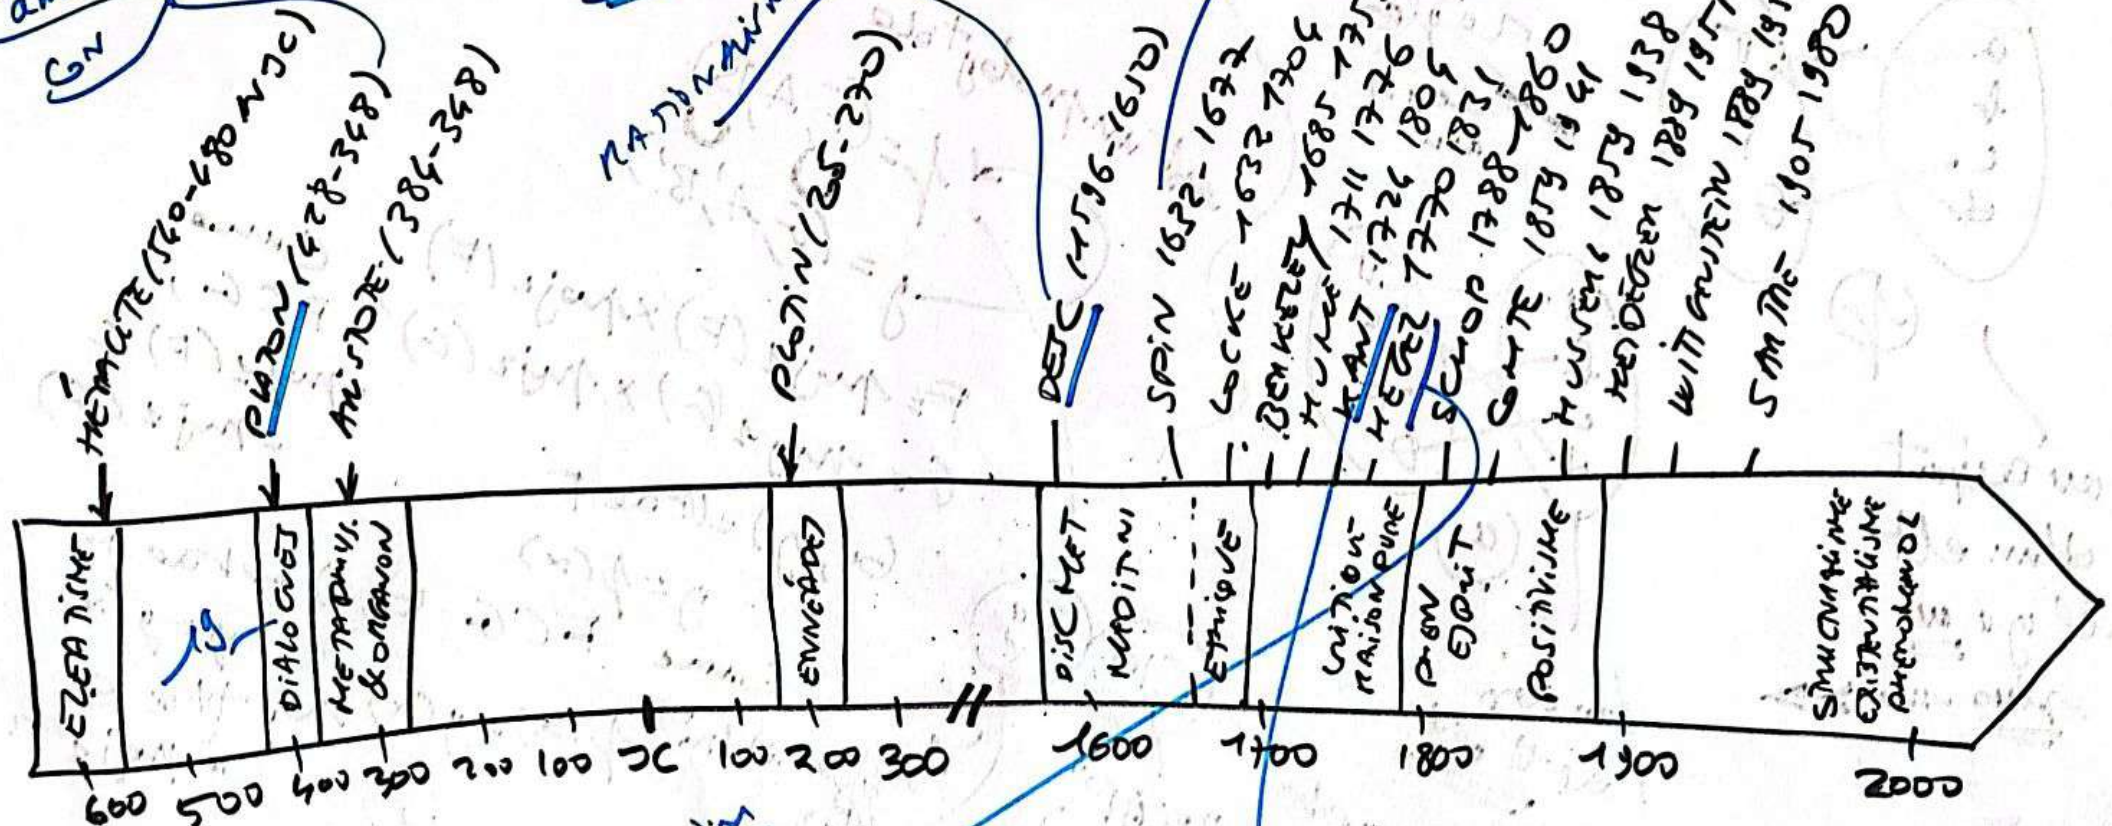 GN
HÉRACLITE (540-480 AV JC)
PLATON (428-348)
ARISTOTE (384-348)
RATIONALISM
PLOTIN (205-270)
DESC (1596-1650)
SPIN 1632-1677
LOCKE 1632 1704
BERKELEY 1685 175
HUME 1711 1776
KANT 1724 1804
HEGEL 1770 1831
SCHOP 1788-1860
COMTE 1859 1941
HUSSERL 1859 1938
HEIDEGGER 1889 195
WITTGENSTEIN 1889 195
SARTRE 1905-1980
ELEATISME
19
DIALOGUES
METAPHYS.
& ORGANON
ENNÉADES
DISC MET.
MEDITNS
ETHIQUE
CRITIQUE
RAISON PURE
PHEN
ESPRIT
POSITIVISME
STRUCTURALISME
EXISTENTIALISME
PHENOMENOL
600 500 400 300 200 100 JC 100 200 300 // 1600 1700 1800 1900 2000